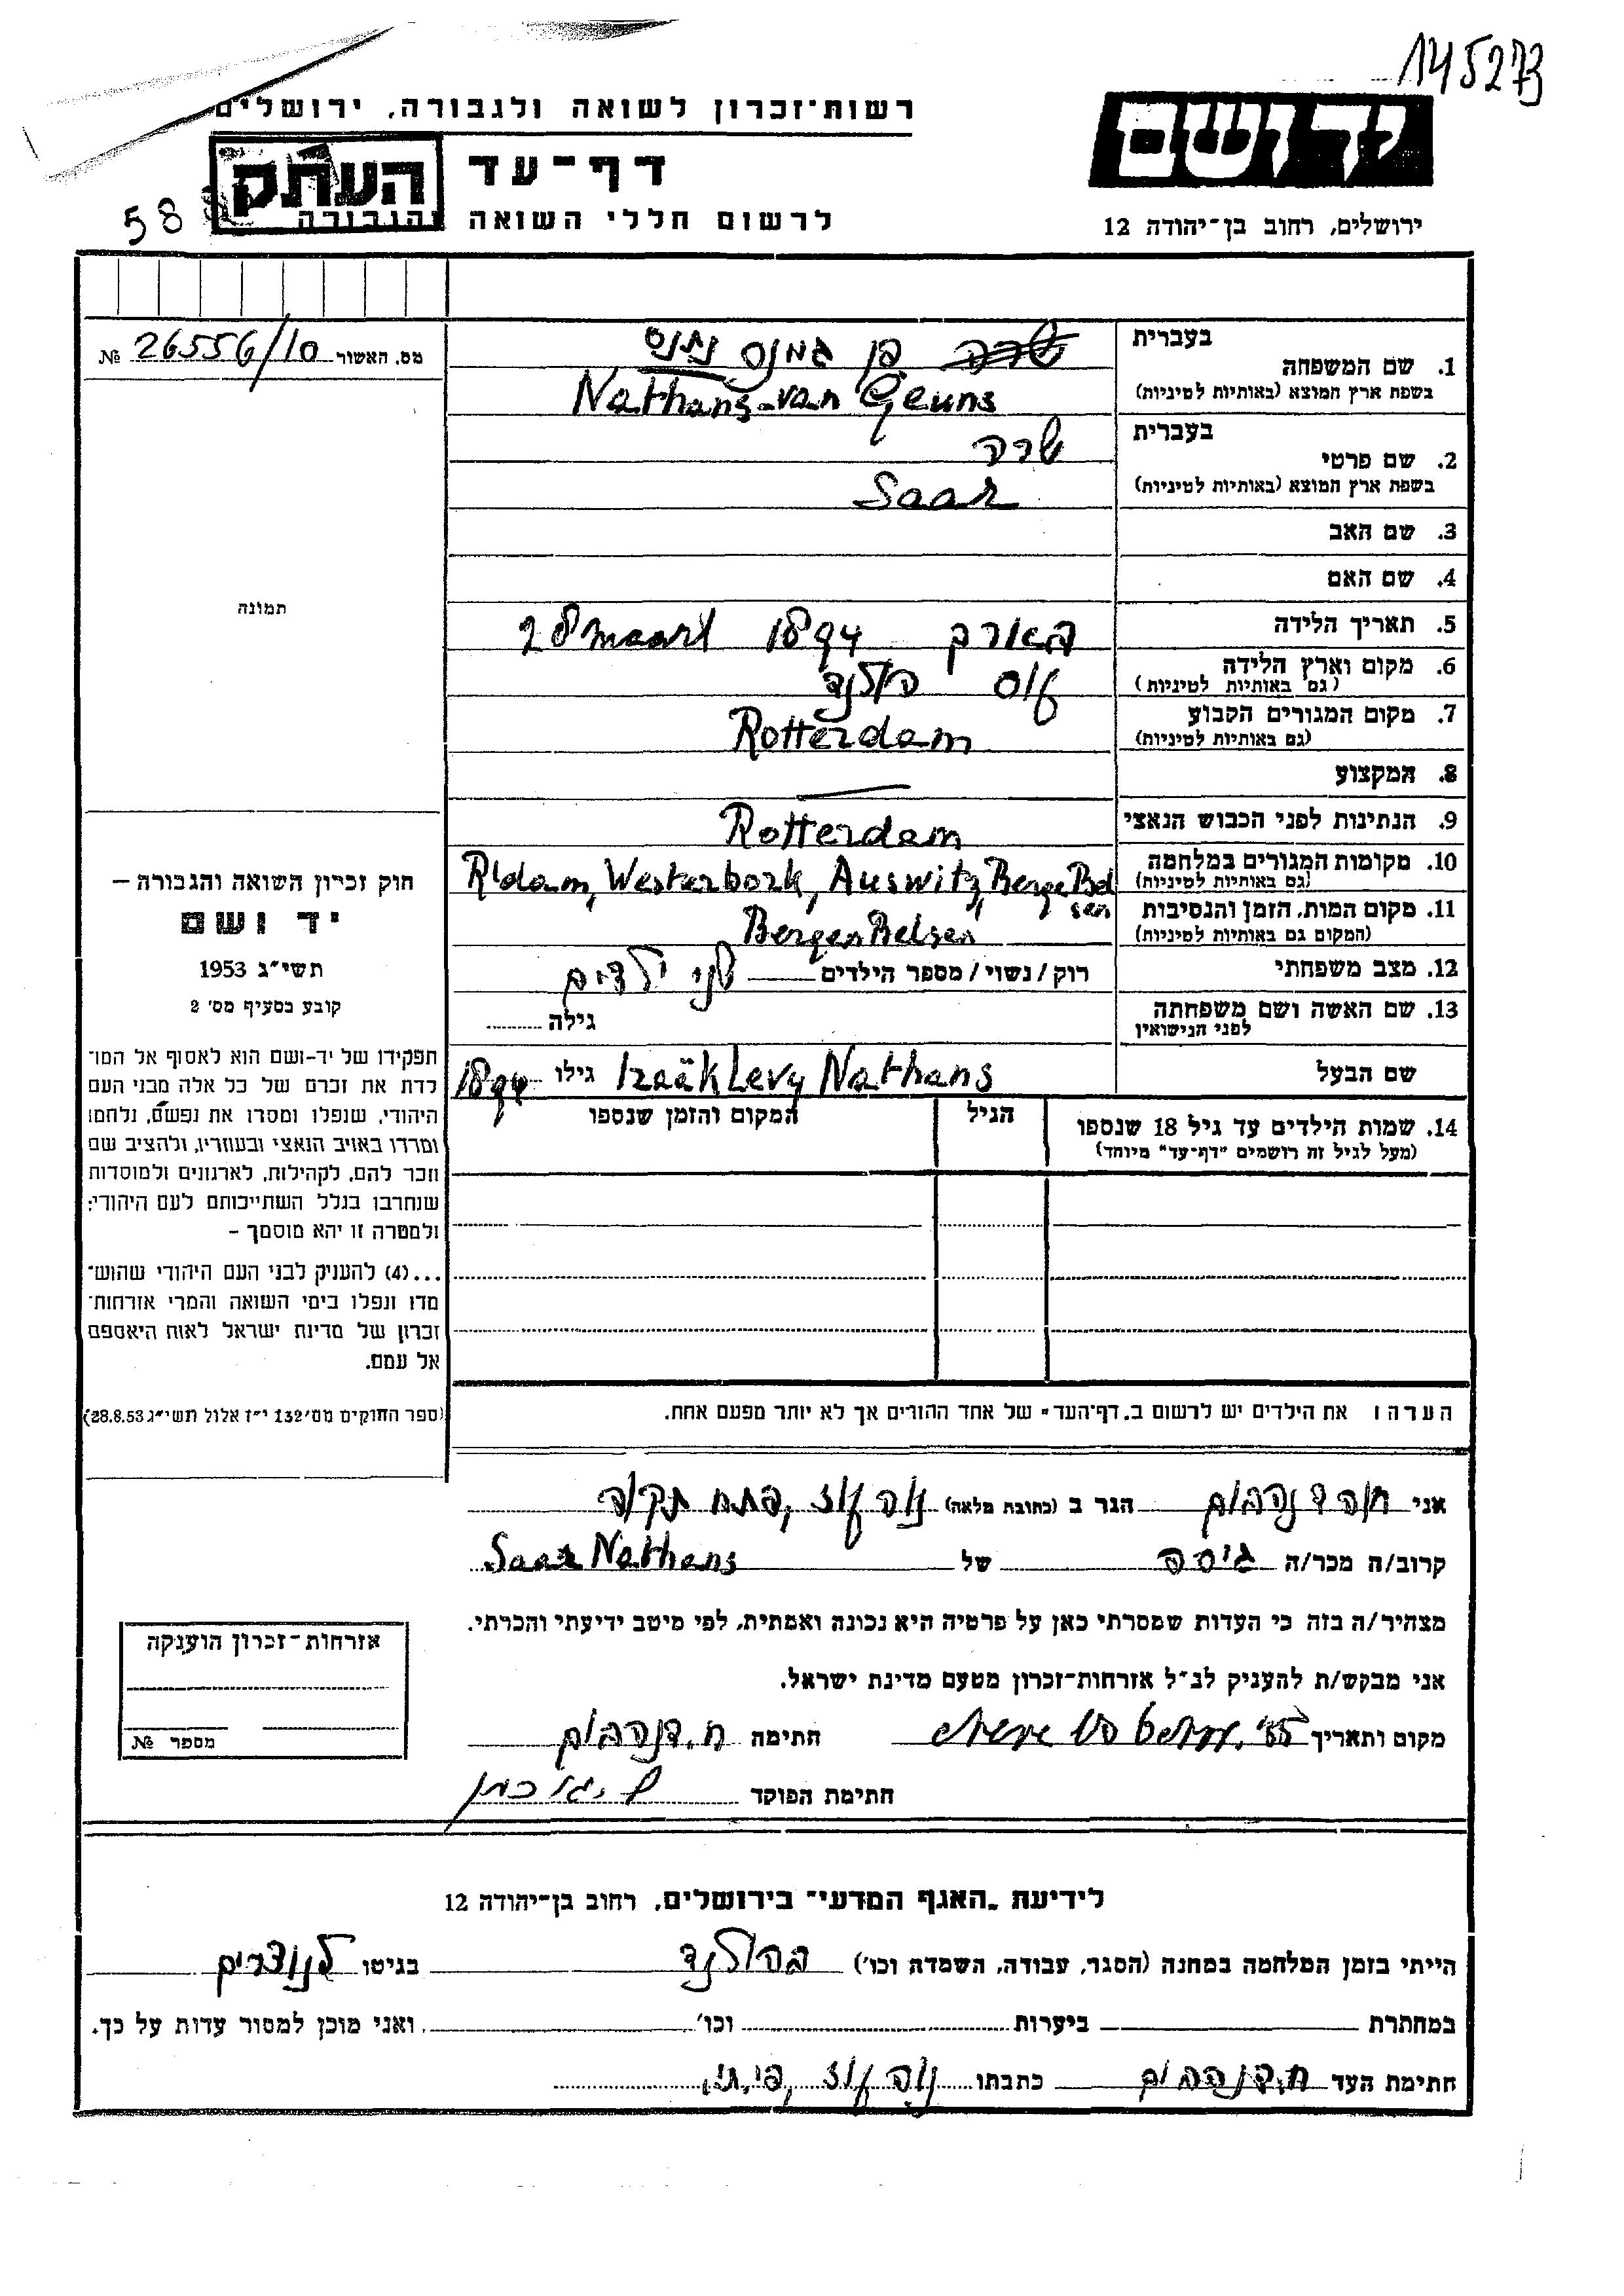 145273
רשות־זכרון לשואה ולגבורה, ירושלים
יד ושם
דף־עד
העתק
58
לרשום חללי השואה והגבורה
ירושלים, רחוב בן־יהודה 12
מס. האשור 26556/10 №
בעברית
1. שם המשפחה
בשפת ארץ המוצא (באותיות לטיניות)
שרה פן גונס נתנס
Nathans-van Geuns
בעברית
2. שם פרטי
בשפת ארץ המוצא (באותיות לטיניות)
שרה
Saar
3. שם האב
4. שם האם
5. תאריך הלידה 1894 28 maart
6. מקום וארץ הלידה
(גם באותיות לטיניות)
הולנד
7. מקום המגורים הקבוע
(גם באותיות לטיניות)
Rotterdam
8. המקצוע
9. הנתינות לפני הכבוש הנאצי Rotterdam
10. מקומות המגורים במלחמה
(גם באותיות לטיניות)
R'dam, Westerbork, Auswitz, Berge Belsen
11. מקום המות, הזמן והנסיבות
(המקום גם באותיות לטיניות)
Bergen Belsen
12. מצב משפחתי רוק/נשוי/מספר הילדים שני ילדים
13. שם האשה ושם משפחתה
לפני הנישואין
גילה
שם הבעל Izaäk Levy Nathans גילו 1894
14. שמות הילדים עד גיל 18 שנספו
(מעל לגיל זה רושמים "דף־עד" מיוחד)
הגיל
המקום והזמן שנספו
תמונה
חוק זכרון השואה והגבורה —
יד ושם
תשי"ג 1953
קובע בסעיף מס' 2
תפקידו של יד-ושם הוא לאסוף אל המו־
לדת את זכרם של כל אלה מבני העם
היהודי, שנפלו ומסרו את נפשם, נלחמו
ומרדו באויב הנאצי ובעוזריו, ולהציב שם
וזכר להם, לקהילות, לארגונים ולמוסדות
שנחרבו בגלל השתייכותם לעם היהודי;
ולמטרה זו יהא מוסמך –
...(4) להעניק לבני העם היהודי שהוש־
מדו ונפלו בימי השואה והמרי אזרחות־
זכרון של מדינת ישראל לאות היאספם
אל עמם.
(ספר החוקים מס' 132 י"ז אלול תשי"ג 28.8.53)
הערה: את הילדים יש לרשום ב„דף־העד" של אחד ההורים אך לא יותר מפעם אחת.
אני חוה דנהבום הגר ב (כתובת מלאה) נוה עוז, פתח תקוה
קרוב/ה מכר/ה גיסה של Saar Nathans
מצהיר/ה בזה כי העדות שמסרתי כאן על פרטיה היא נכונה ואמתית, לפי מיטב ידיעתי והכרתי.
אני מבקש/ת להעניק לנ"ל אזרחות־זכרון מטעם מדינת ישראל.
מקום ותאריך '55 חתימה ח. דנהבום
חתימת הפוקד
אזרחות־זכרון הוענקה
מספר №
לידיעת „האגף המדעי" בירושלים, רחוב בן־יהודה 12
הייתי בזמן המלחמה במחנה (הסגר, עבודה, השמדה וכו') בהולנד בגיטו לנוצרים
במחתרת ביערות וכו' ואני מוכן למסור עדות על כך.
חתימת העד ח. דנהבום כתבתו נוה עוז, פ.ת.